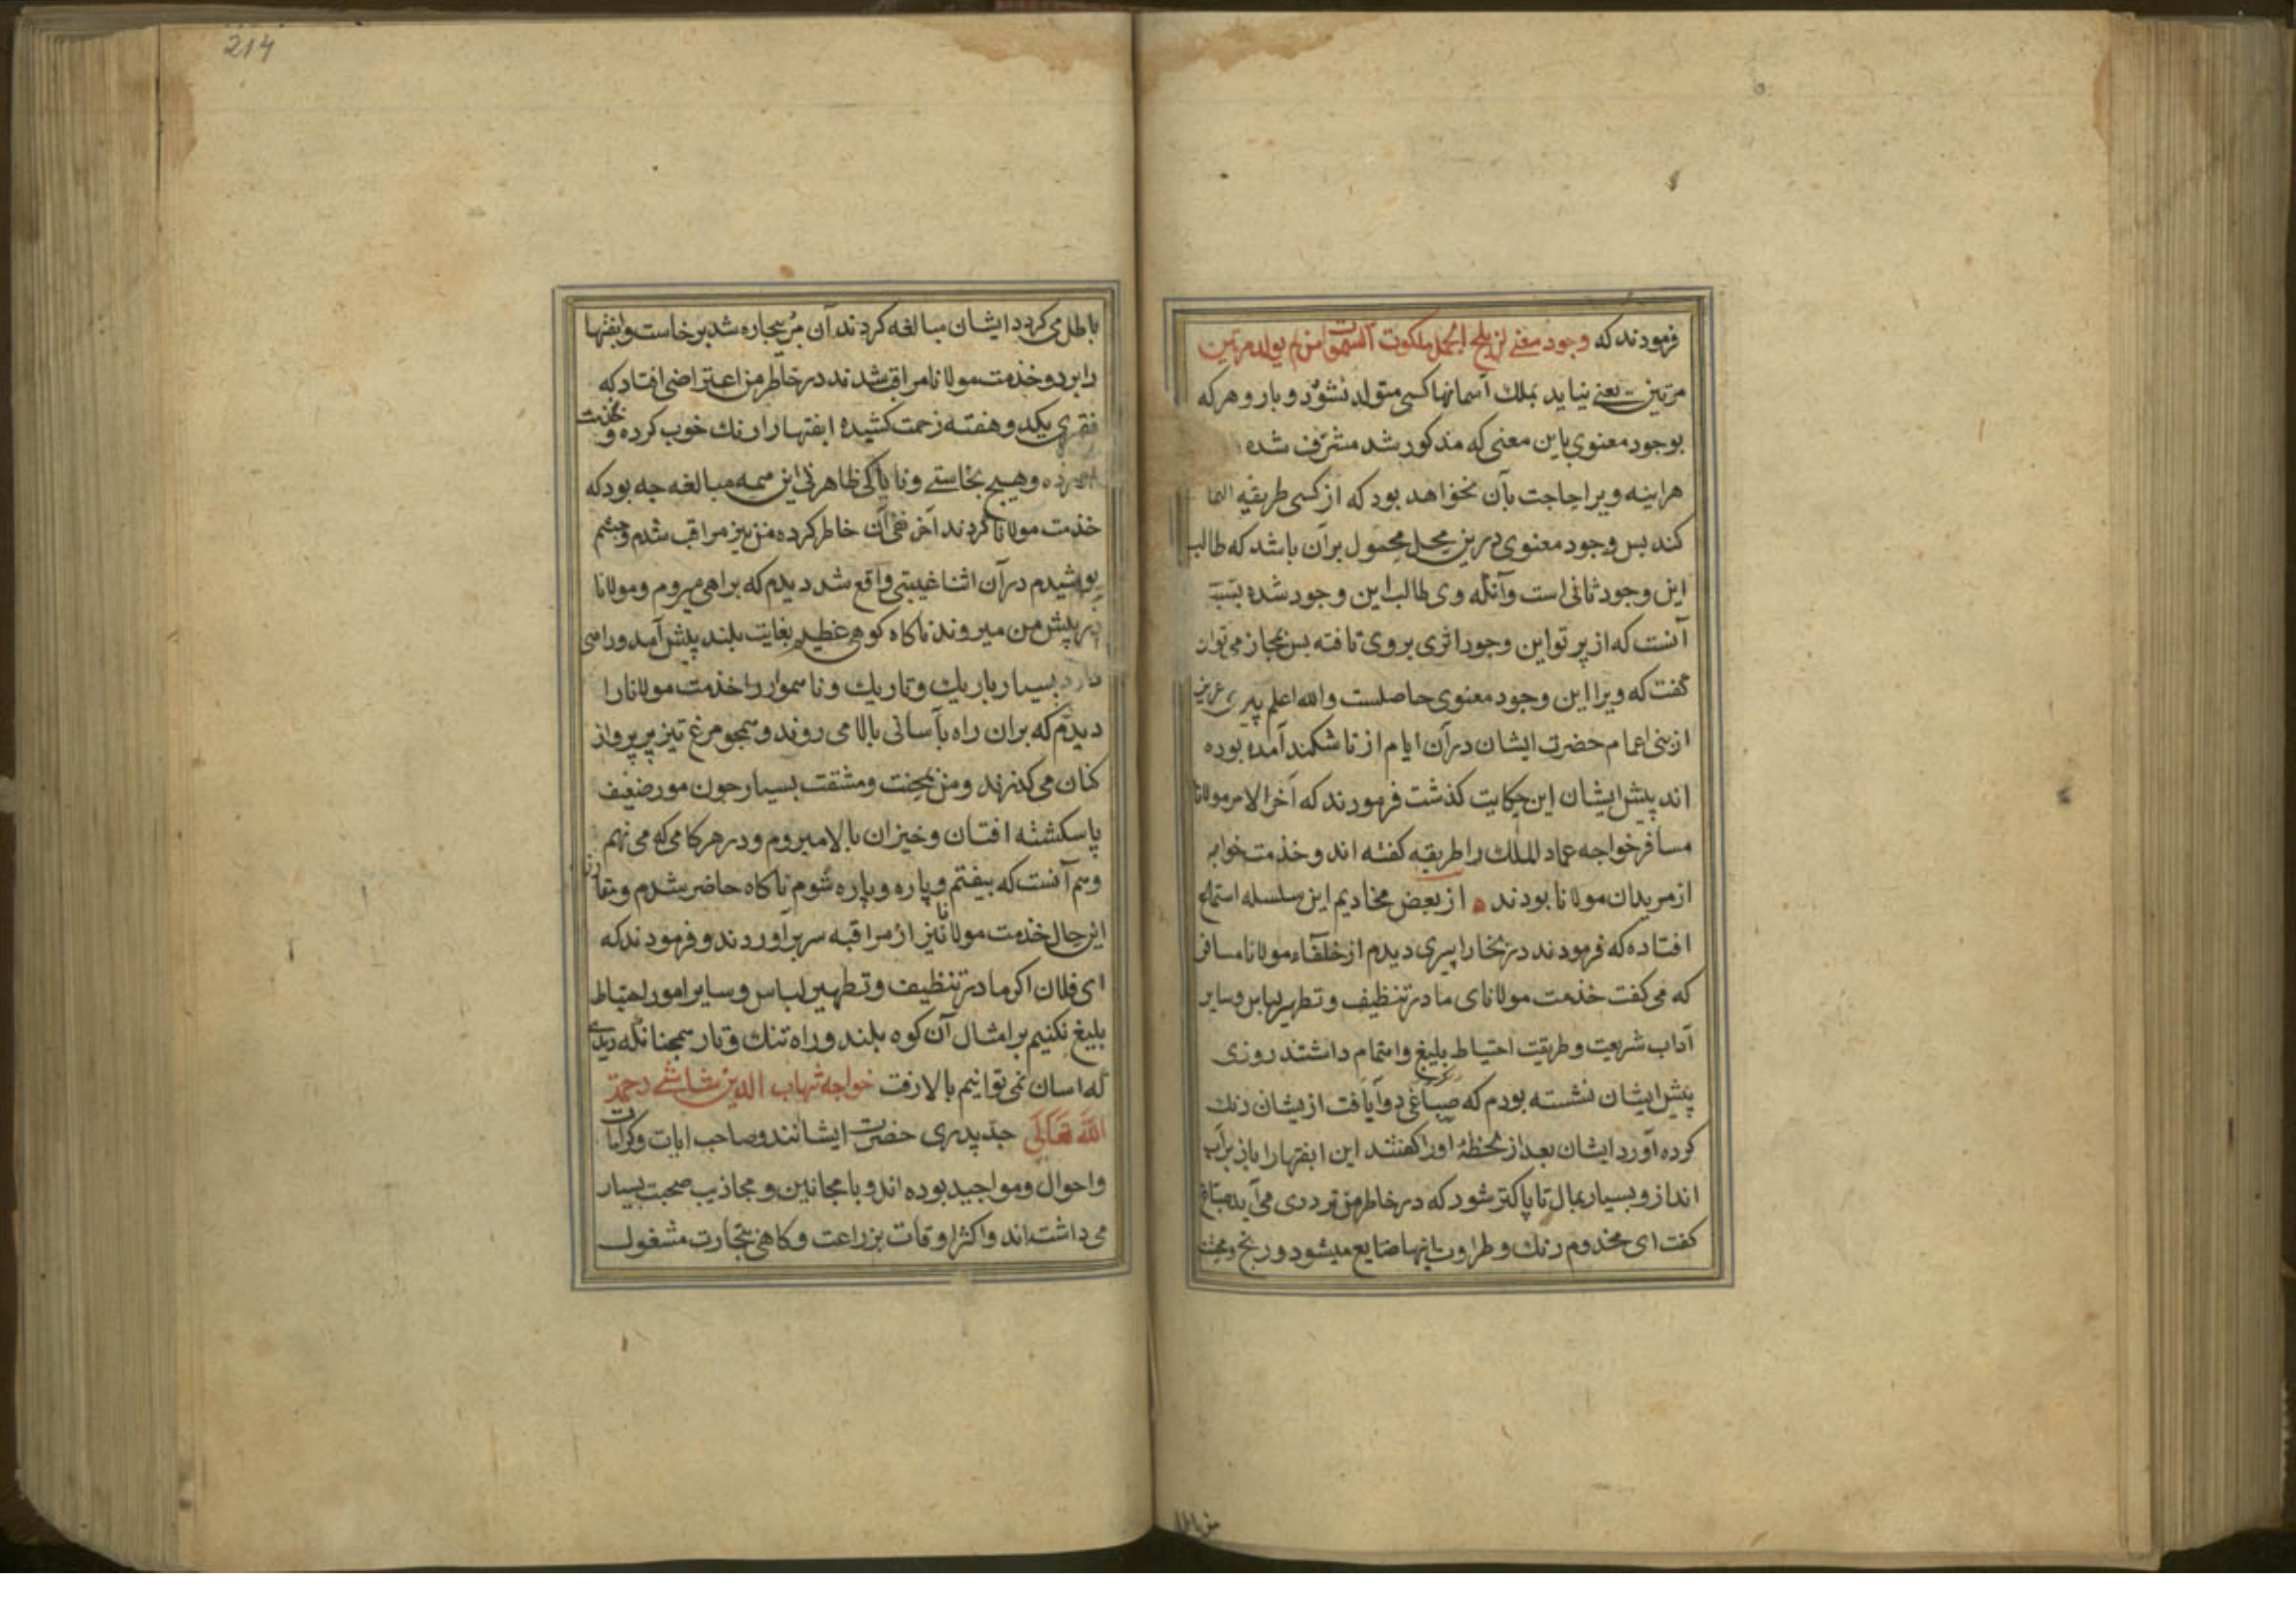 فرمودند که وجود معنی لن یلج ملکوت السموات من لم یولد مرتین
مرتین یعنی نیاید بملک آسمانها کسی متولد نشود دو بار و هر که
بوجود معنوی باین معنی که مذکور شد مشرف شده
هراینه ویرا حاجت بآن نخواهد بود که از کسی طریقه
کند بس وجود معنوی درین محل محمول برآن باشد که طالب
این وجود ثانی است وآنکه وی طالب این وجود شده
آنست که از پرتو این وجود اثری بروی تافته بس مجاز می توان
گفت که ویرا این وجود معنوی حاصلست والله اعلم پیری عزیز
از بنی اعمام حضرت ایشان درآن ایام از تاشکند آمده بوده
اند پیش ایشان این حکایت گذشت فرمودند که آخر الامر مولانا
مسافر خواجه عماد الملک را طریقه کفته اند و خدمت خواجه
از مریدان مولانا بودند از بعض مخادیم این سلسله استماع
افتاده که فرمودند در بخارا پیری دیدم از خلفآء مولانا مسافر
که می کفت خدمت مولانای ما در تنظیف و تطهیر لباس و سایر
آداب شریعت و طریقت احتیاط بلیغ و اهتمام داشتند روزی
پیش ایشان نشسته بودم که صباغی دوآیافت از یشان رنک
کرده آورد ایشان بعد از لحظۀ اورا کفتند این ابفتهارا باز برآب
انداز و بسیار بمال تا پاکتر شود که در خاطر من ترددی می آید صباغ
کفت ای مخدوم رنک و طراوت اینها ضایع میشود و رنج و محنت
214
باطل می کردد ایشان مبالغه کردند آن مرد بیچاره شد برخاست و ابفتها
را برد و خدمت مولانا مراقب شدند در خاطر من اعتراضی افتاد که
فقیری یکدو هفته زحمت کشیده ابفتهارا رنک خوب کرده و بخدمت
وهیچ نجاستی و ناپاکی ظاهر نی این همه مبالغه چه بود که
خدمت مولانا کردند آخر نفی آن خاطر کرده من نیز مراقب شدم و چشم
پوشیدم درآن اثنا غیبتی واقع شد دیدم که براهی میروم و مولانا
در پیش من میروند ناکاه کوهی عظیم بغایت بلند پیش آمد و راهی
دارد بسیار باریک و تاریک و ناهموار و خدمت مولانا را
دیدم که بران راه بآسانی بالا می روند و همچو مرغ تیز پر پرواز
کنان می کذرند و من بمحنت و مشقت بسیار جون مور ضعیف
پاشکشته افتان و خیزان بالا میروم و در هر کامی که می نهم
وهم آنست که بیفتم و پاره و پاره شوم ناکاه حاضر شدم و مقارن
این حال خدمت مولانا نیز از مراقبه سر برآوردند و فرمودند که
ای فلان اکر ما در تنظیف و تطهیر لباس و سایر امور احتیاط
بلیغ نکنیم بر امثال آن کوه بلند و راه تنک و تار همچنانکه دیدی
که اسان نمی توانیم بالا رفت خواجه شهاب الدین شاشی رحمة
الله تعالی جد پدری حضرت ایشانند و صاحب ایات و کرامات
و احوال و مواجید بوده اند و با مجانین و مجاذیب صحبت بسیار
می داشته اند و اکثر اوقات بزراعت و کاهی بتجارت مشغول